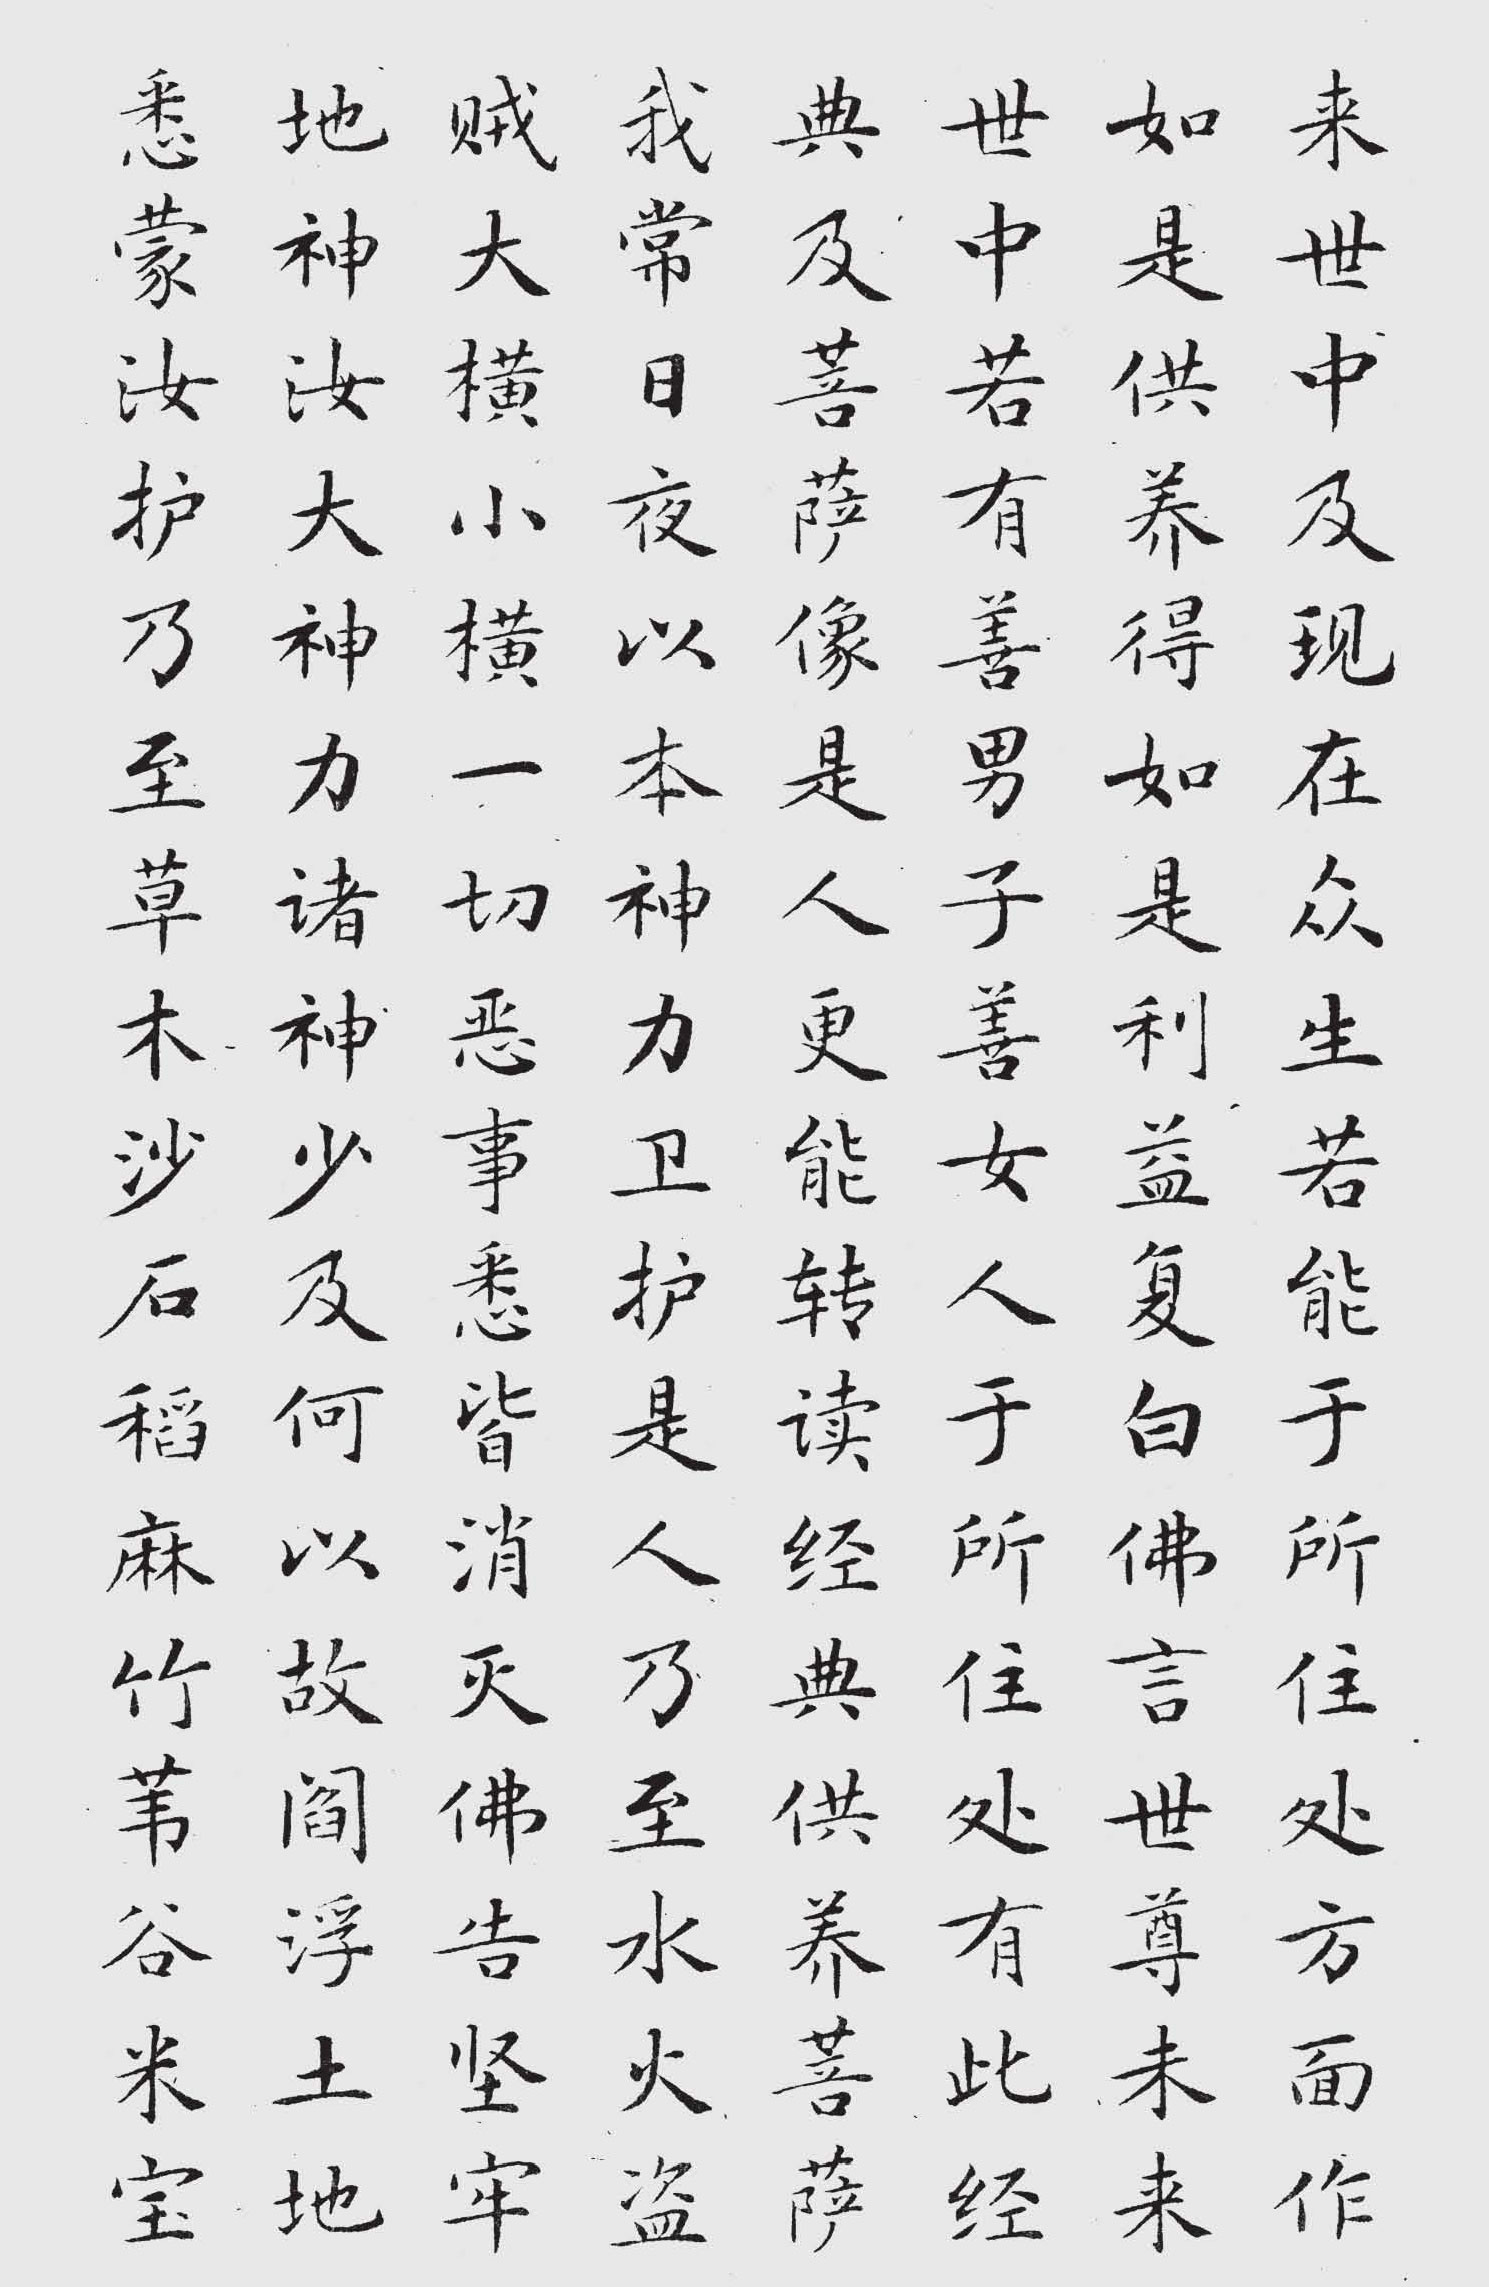 来世中及现在众生若能于所住处方面作
如是供养得如是利益复白佛言世尊未来
世中若有善男子善女人于所住处有此经
典及菩萨像是人更能转读经典供养菩萨
我常日夜以本神力卫护是人乃至水火盗
贼大横小横一切恶事悉皆消灭佛告坚牢
地神汝大神力诸神少及何以故阎浮土地
悉蒙汝护乃至草木沙石稻麻竹苇谷米宝